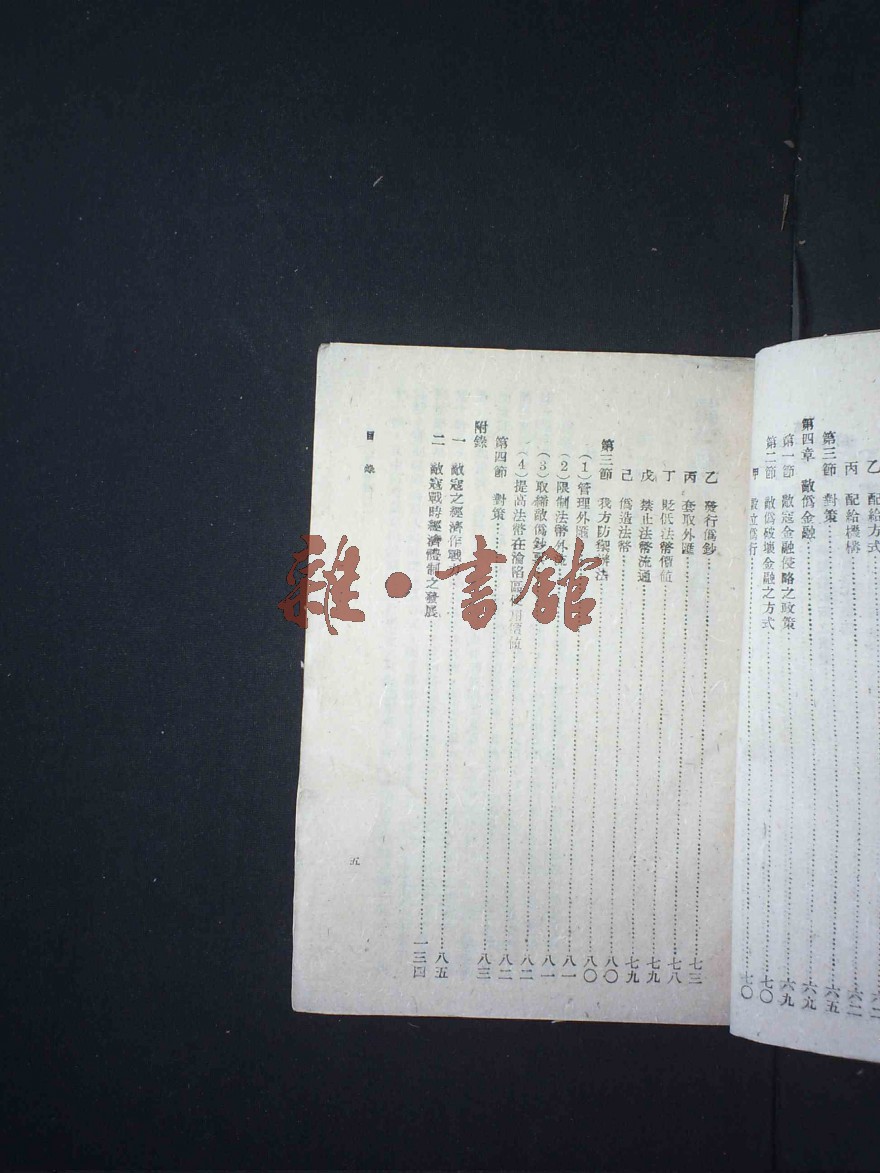 乙 配給方式
丙 配給機構……六二
第三節 對策……六五
第四章 敵僞金融……六九
第一節 敵寇金融侵略之政策……六九
第二節 敵僞破壞金融之方式……七〇
甲 設立僞行……七〇
乙 發行僞鈔……七三
丙 套取外匯……七八
丁 貶低法幣價值……七九
戊 禁止法幣流通……七九
己 僞造法幣……八〇
第三節 我方防禦辦法……八〇
(1)管理外匯……八一
(2)限制法幣外……八一
(3)取締敵僞鈔……八二
(4)提高法幣在淪陷區使用價值……八二
第四節 對策……八三
附錄
一 敵寇之經濟作戰力……八五
二 敵寇戰時經濟體制之發展……一三四
目錄
五
雜·書館